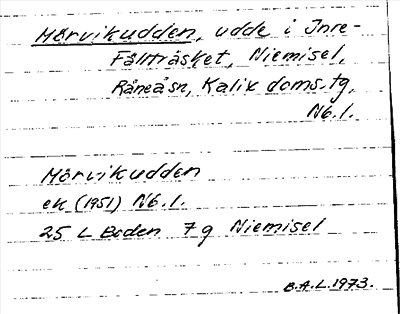 Mörvikudden, udde i Inre-
Fällträsket, Niemisel,
Råneå sn, Kalix doms.tg,
Nb.l.
Mörvikudden
ek (1951) Nb.l.
25 L Boden 7g Niemisel
B.A.L. 1973.